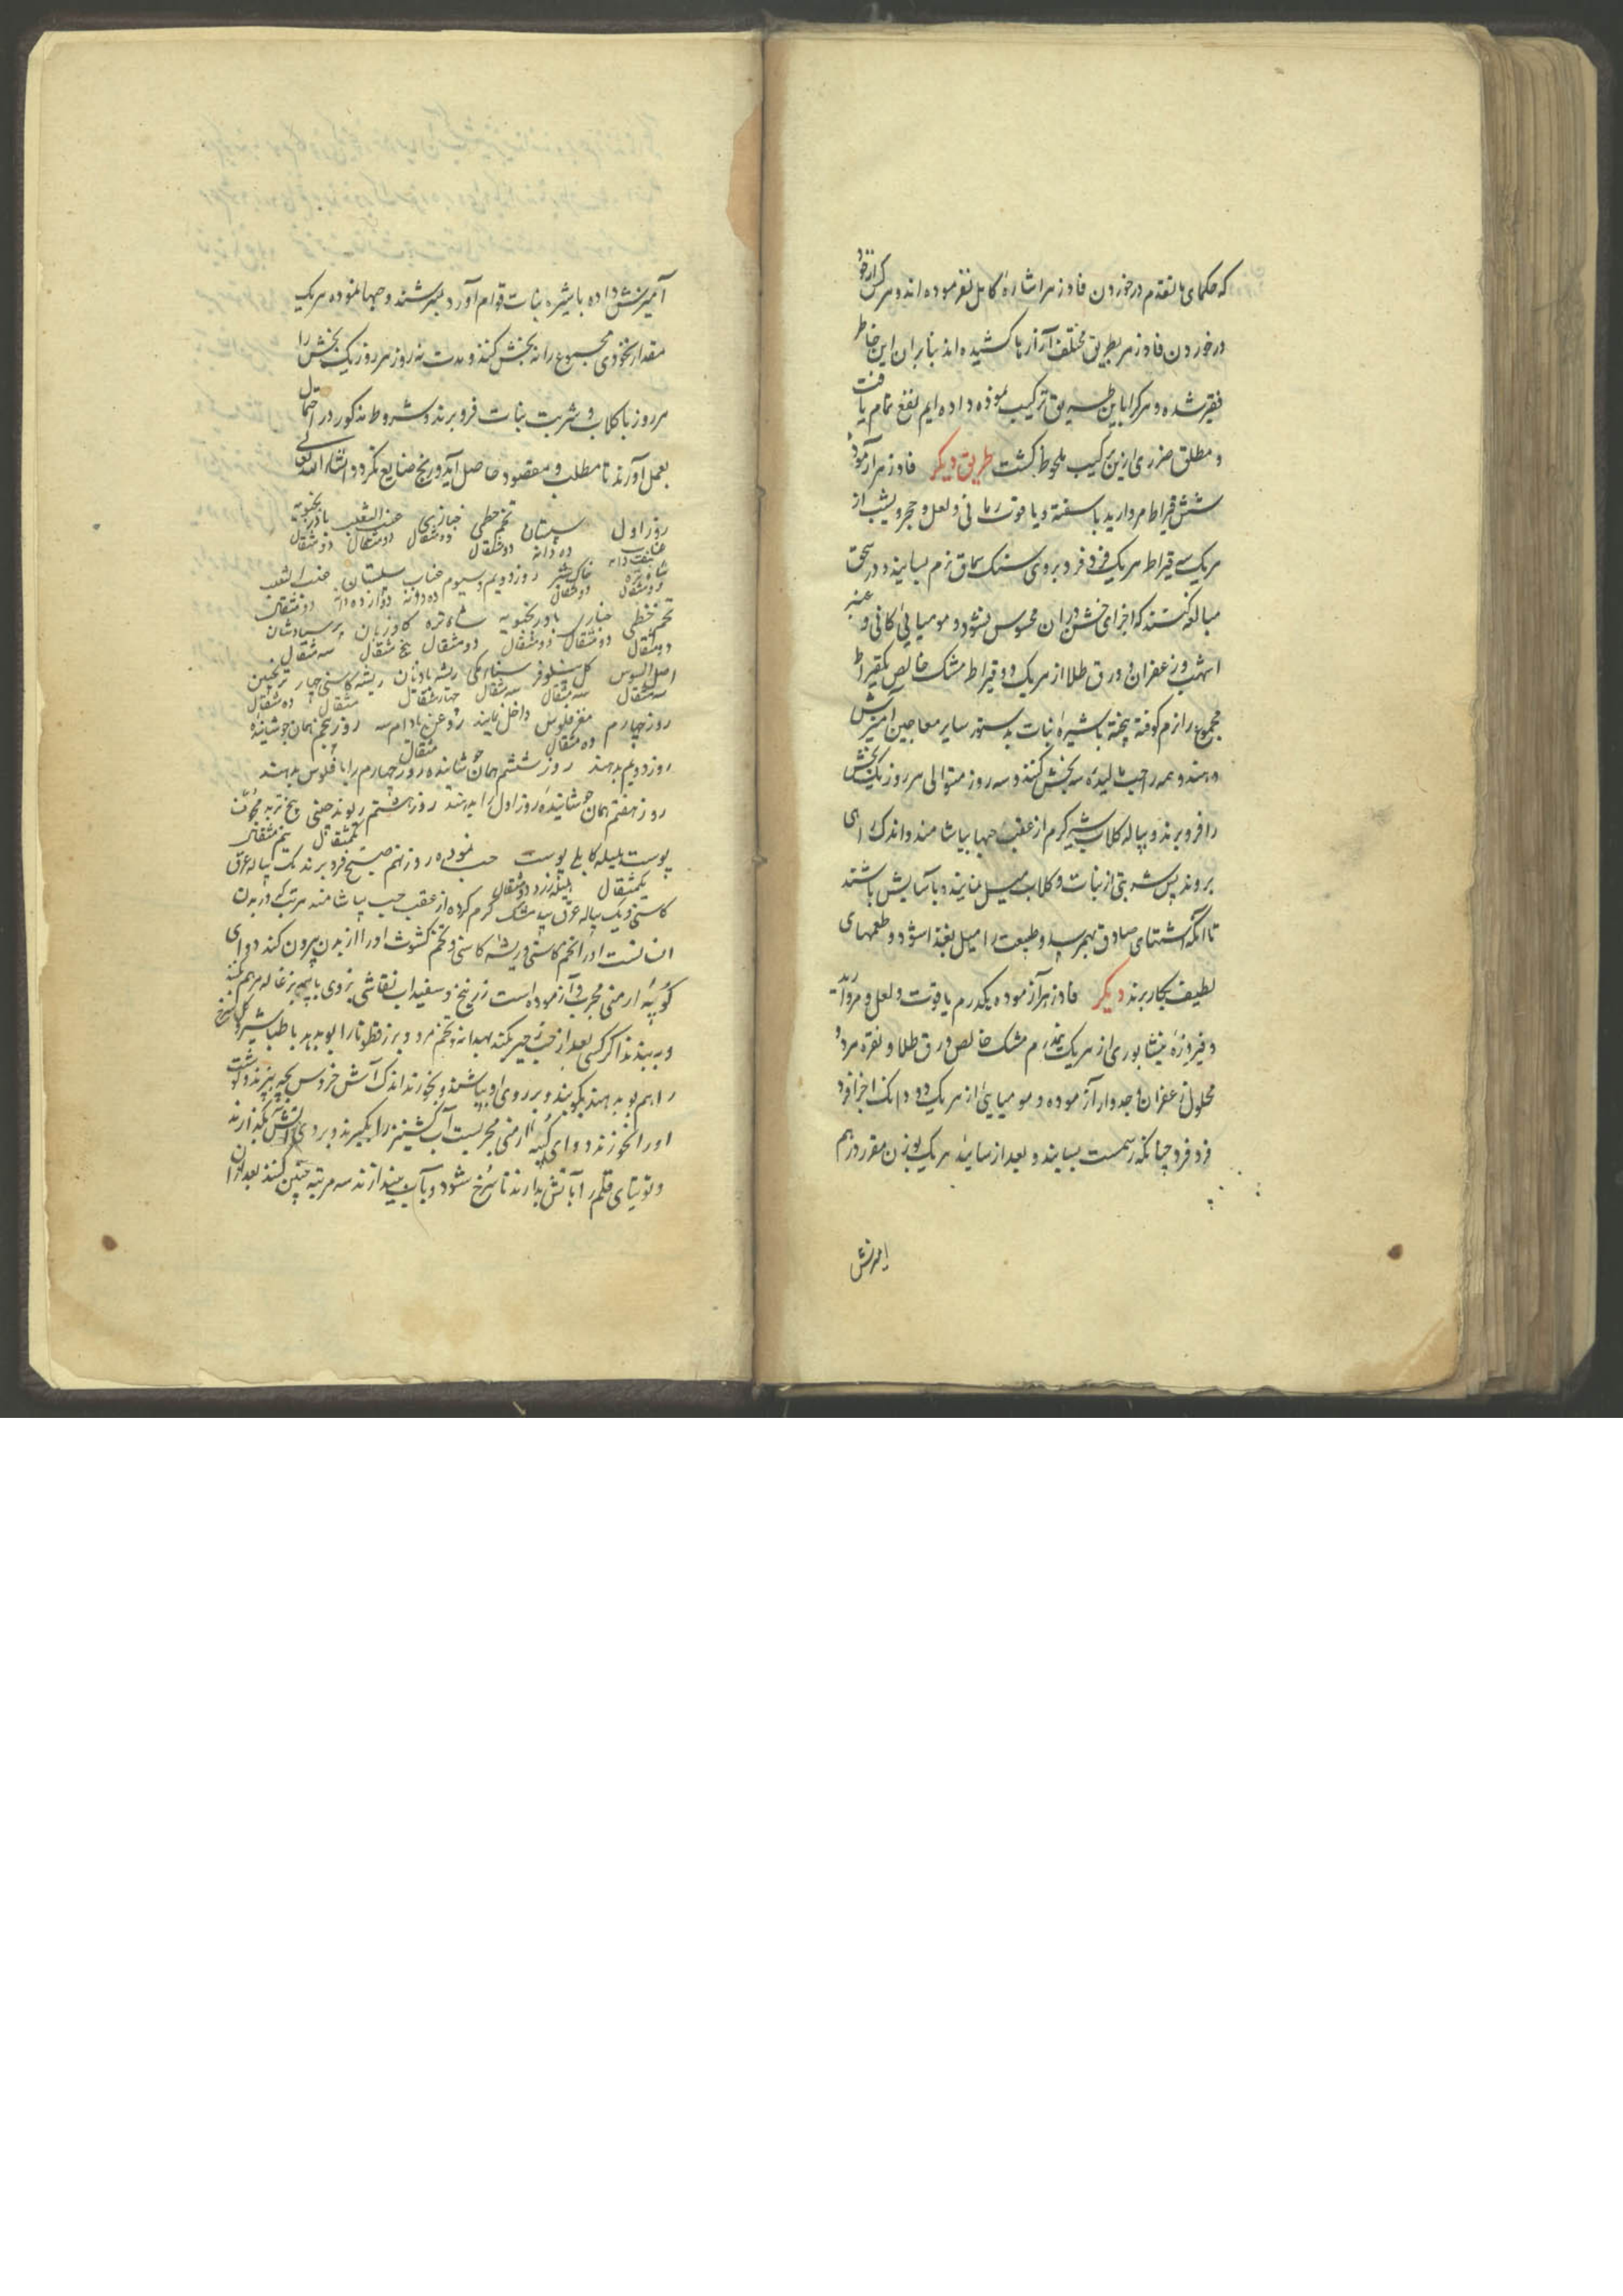 که حکمای ما تقدم در خوردن فادزهر اشاره کامل نفرموده اند و هرکس از خود
در خوردن فادزهر بطریق مختلف آزارها کشیده اند بنابران این خاطر
فقیر شده و هرکرا باین طریق ترکیب نموده داده ایم نفع تمام یافت
و مطلق ضرری ازین ترکیب ملحوظ نگشت طریق دیگر فادزهر آزموده
شش قیراط مروارید ناسفته و یاقوت رمانی و لعل و حجر و یشب از
هریک سه قیراط هریک فرد فرد بروی سنک سماق نرم بسایند و در سحق
مبالغه کنند که اجزای خشن دران محسوس نشود و مومیائی کانی و عنبر
اشهب و زعفران و ورق طلا از هریک دو قیراط مشک خالص یکقیراط
مجموع را نرم کوفته پخته باشیره نبات بدستور سایر معاجین آمیزش
دهند و همه را حب مالیده سه بخش کنند و سه روز متوالی هر روز یک بخش
را فرو برند و پیاله کلاب شیر گرم از عقب حبها بیاشامند و اندک راهی
بروند پس شربتی از نبات و کلاب میل نمایند و باسایش باشند
تا آنکه اشتهای صادق بهم رسد و طبیعت را میل بغذا شود و طعمهای
لطیف بکار برند دیگر فادزهر آزموده یکدرم یاقوت و لعل و مروارید
و فیروزه نیشابوری از هریک نیمدرم مشک خالص ورق طلا و نقره هردو
محلول زعفران جدوار آزموده و مومیایی از هریک دو دانک اجزا فرد
فرد فرد چنانکه رسمست بسایند و بعد از ساییدن هریک بوزن مقرر درهم
آمیزش
آمیزش داده باشیره نبات قوام آورده بسرشند و حبها نموده هریک
مقدار نخودی مجموع را نه بخش کنند و مدت نه روز هر روز یک بخش را
هر روز با کلاب و شربت نبات فرو برند و شروط مذکور در احتمال
بعمل آورند تا مطلب و مقصود حاصل آید و رنج ضایع نکردد انشاء الله تعالی
روز اول سپستان تخم خطمی خبازی عنب الثعلب بادرنجبویه
عناب ده دانه دو مثقال دو مثقال دو مثقال دو مثقال
شاه تره خاکشیر روز دویم و سیوم عناب سپستان عنب الثعلب
دو مثقال دو مثقال ده دانه دوازده دانه دو مثقال
تخم خطمی خبازی بادرنجبویه شاه تره کاوزبان پرسیاوشان
دو مثقال دو مثقال دو مثقال دو مثقال پنج مثقال سه مثقال
اصل السوس کل نیلوفر سناء مکی ریشه بادیان ریشه کاسنی چهار ترنجبین
سه مثقال سه مثقال سه مثقال چهار مثقال مثقال ده مثقال
روز چهارم مغز فلوس داخل نمایند روغن بادام سه روز پنجم همان جوشانیده
ده مثقال مثقال
روز دویم بدهند روز ششم همان جوشانیده روز چهارم را با فلوس بدهند
روز هفتم همان جوشانیده روز اول را بدهند روز هشتم ریوند چینی بیخ تربد مجوف
یکمثقال نیم مثقال
پوست هلیله کابلی پوست حب نموده روز نهم صبح فرو برند یک پیاله عرق
یکمثقال هلیله زرد دو مثقال
کاسنی و یک پیاله عرق بیدمشک گرم کرده از عقب حب بیاشامند هر تبی که در بدن
انسانست او را تخم کاسنی و ریشه کاسنی و تخم کشوث او را از بدن بیرون کند دوای
ارمنی مجرب و آزموده است زرنیخ و سفیداب نقاشی بروی بز غاله مرهم کنند
و ببندند اکر کسی بعد از حب زحیر بکند بهدانه و تخم مرو و بزرقطونا را بو بدهد با طباشیر و گل سرخ
را هم بو بدهند بکوبند و بر روی او بپاشند و بخورند اندک آش خروس بچه بپزند و گوشت
او را نخورند دوای ارمنی مجربست آب گشنیز را بگیرند و بروی آتش بگذارند
و توتیای قلم را بآتش بدارند تا سرخ شود و بآب بیندازند سه مرتبه چنین کنند بعد ازان